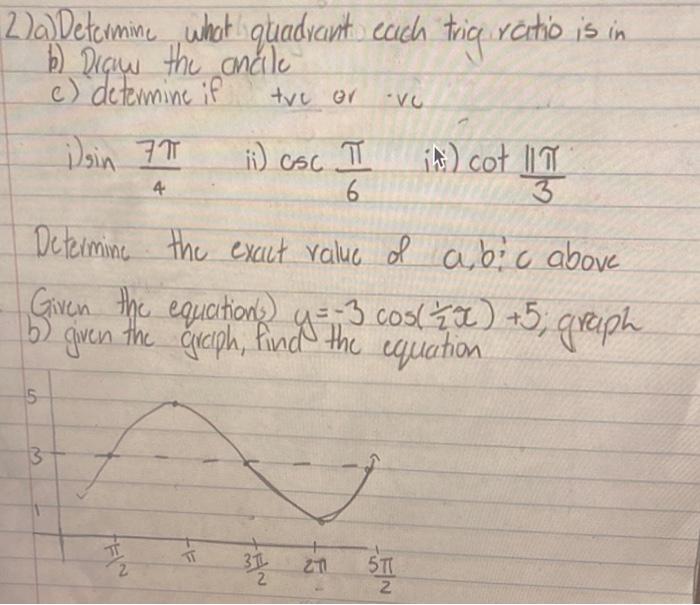 2) a) Determine what quadrant each trig ratio is in
b) Draw the angle
c) determine if +ve or -ve
i) sin 7π/4 ii) csc π/6 iii) cot 11π/3
Determine the exact value of a, b & c above
Given the equation(s) y = -3 cos(½x) + 5; graph
b) given the graph, find the equation
5
3
1
π/2 π 3π/2 2π 5π/2